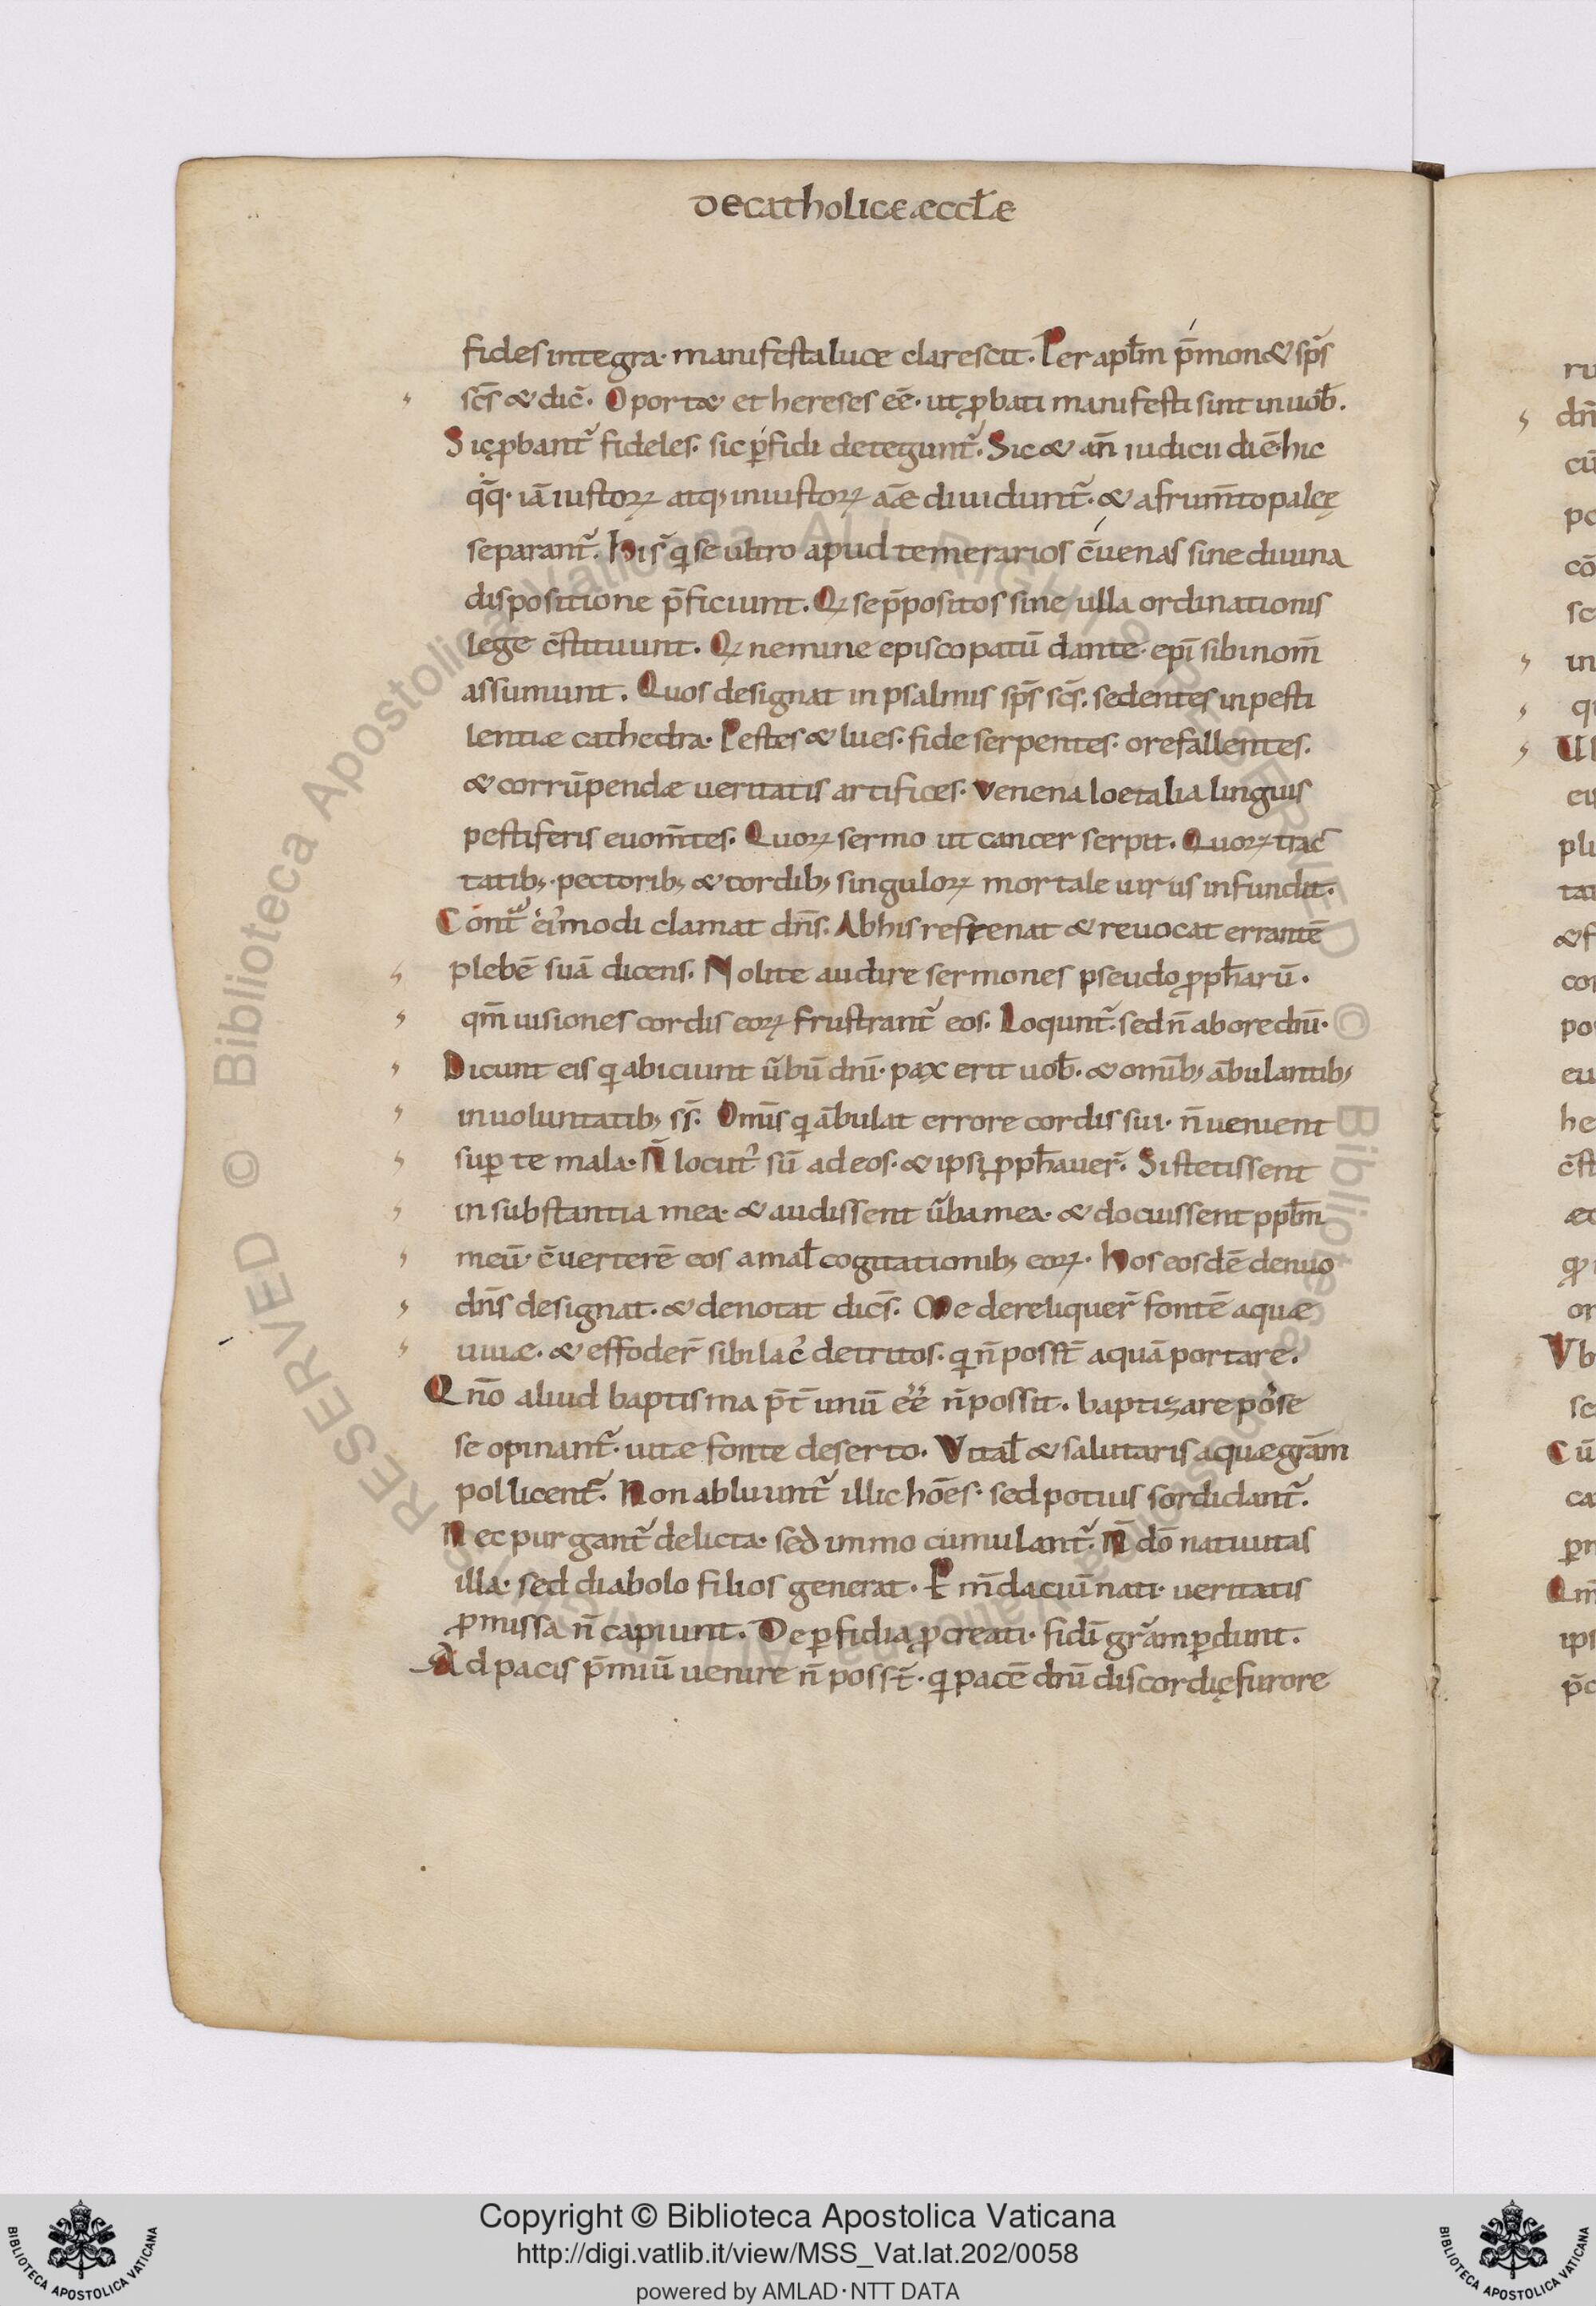 De catholicae æccłæ
fides integra· manifesta luce clarescit. Per apłm p̄monet sp̄s
sc̄s & dic̄· Oportet et hereses eē· ut ꝓbati manifesti sint in uob̄.
Sic ꝓbant᷑ fideles· sic ꝑfidi detegunt᷑. Sic & an̄ iudicii diē· hic
qq̄· iā iustoꝝ atq; iniustoꝝ aīæ diuidunt᷑· & a frum̄to paleę
separant᷑. his̄ qui se ultro apud temerarios c̄uenas sine diuina
dispositione p̄ficiunt. Qꝝ se p̄positos sine ulla ordinationis
lege c̄stituunt. Qꝝ nemine episcopatū dante· epī sibi nom̄
assumunt. Quos designat in psalmis sp̄s sc̄s· sedentes in pesti
lentiæ cathedra· Pestes & lues· fide serpentes· ore fallentes.
& corrūpendæ ueritatis artifices· Venena loetalia linguis
pestiferis euom̄tes. Quoꝝ sermo ut cancer serpit. Quoꝝ trac̄
tatib;· pectorib; & cordib; singuloꝝ mortale uirus infundit·
Cont᷑ ei᷒modi clamat dn̄s. Ab his refrenat & reuocat errantē
plebē suā dicens. Nolite audire sermones pseudo ꝓph̄arū·
qm̄ uisiones cordis eoꝝ frustrant᷑ eos. Loqunt᷑· sed n̄ ab ore dn̄i·
Dicunt eis q̇ abiciunt ūbū dn̄i· pax erit uob̄· & omīb; ābulantib;
in uoluntatib; ss̄. Omīs q̇ ābulat errore cordis sui· n̄ uenient
suꝑ te mala· N̄ locut᷒ sū ad eos· & ipsi ꝓph̄auer̄. Si stetissent
in substantia mea· & audissent ūba mea· & docuissent ppłm
meū· c̄uerterē eos a mal̄ cogitationib; eoꝝ· hos eosdē denuo
dn̄s designat· & denotat dic̄s. Me dereliquer̄ fontē aquæ
uiuæ· & effoder̄ sibi lac᷒ detritos· q̇ n̄ posst̄ aquā portare.
Qn̄o aliud baptisma p̄t̄ unū eē n̄ possit. baptizare posse
se opinant᷑· uitæ fonte deserto. Vital̄ & salutaris aquæ grām
pollicent᷑. Non abluunt᷑ illic hōes· sed potius sordidant᷑.
Nec purgant᷑ delicta· sed immo cumulant᷑. N̄ dō natiuitas
illa· sed diabolo filios generat. P m̄daciū nati· ueritatis
ꝓmissa n̄ capiunt. De ꝑfidia ꝓcreati· fidī grām ꝑdunt.
Ad pacis p̄miū uenire n̄ posst̄· q̇ pacē dn̄i discordię furore
Copyright © Biblioteca Apostolica Vaticana
http://digi.vatlib.it/view/MSS_Vat.lat.202/0058
powered by AMLAD·NTT DATA